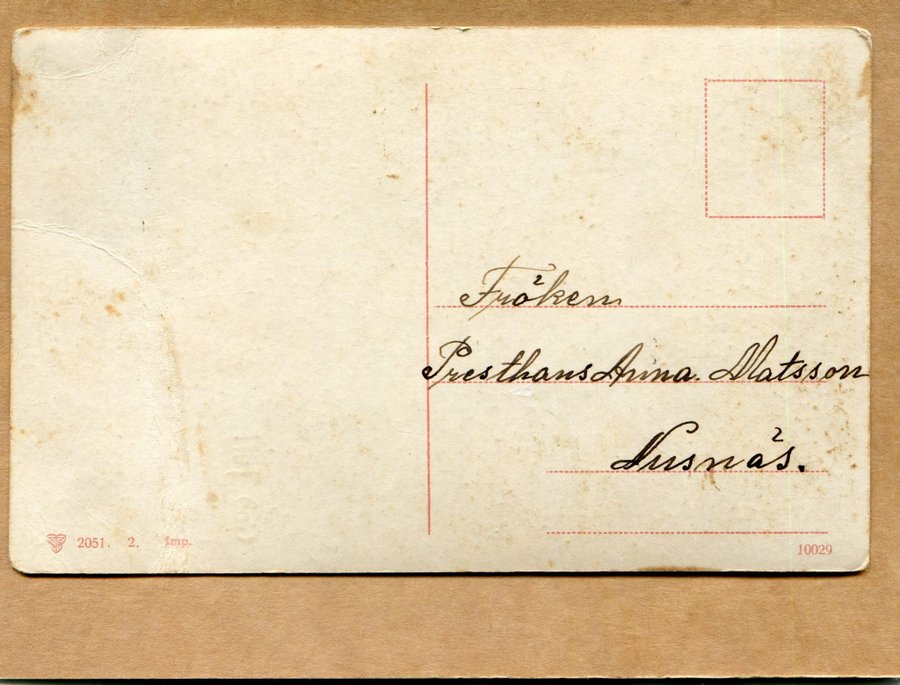 Fröken
Presthans Anna Matsson
Nusnäs.
2051. 2. Imp.
10029